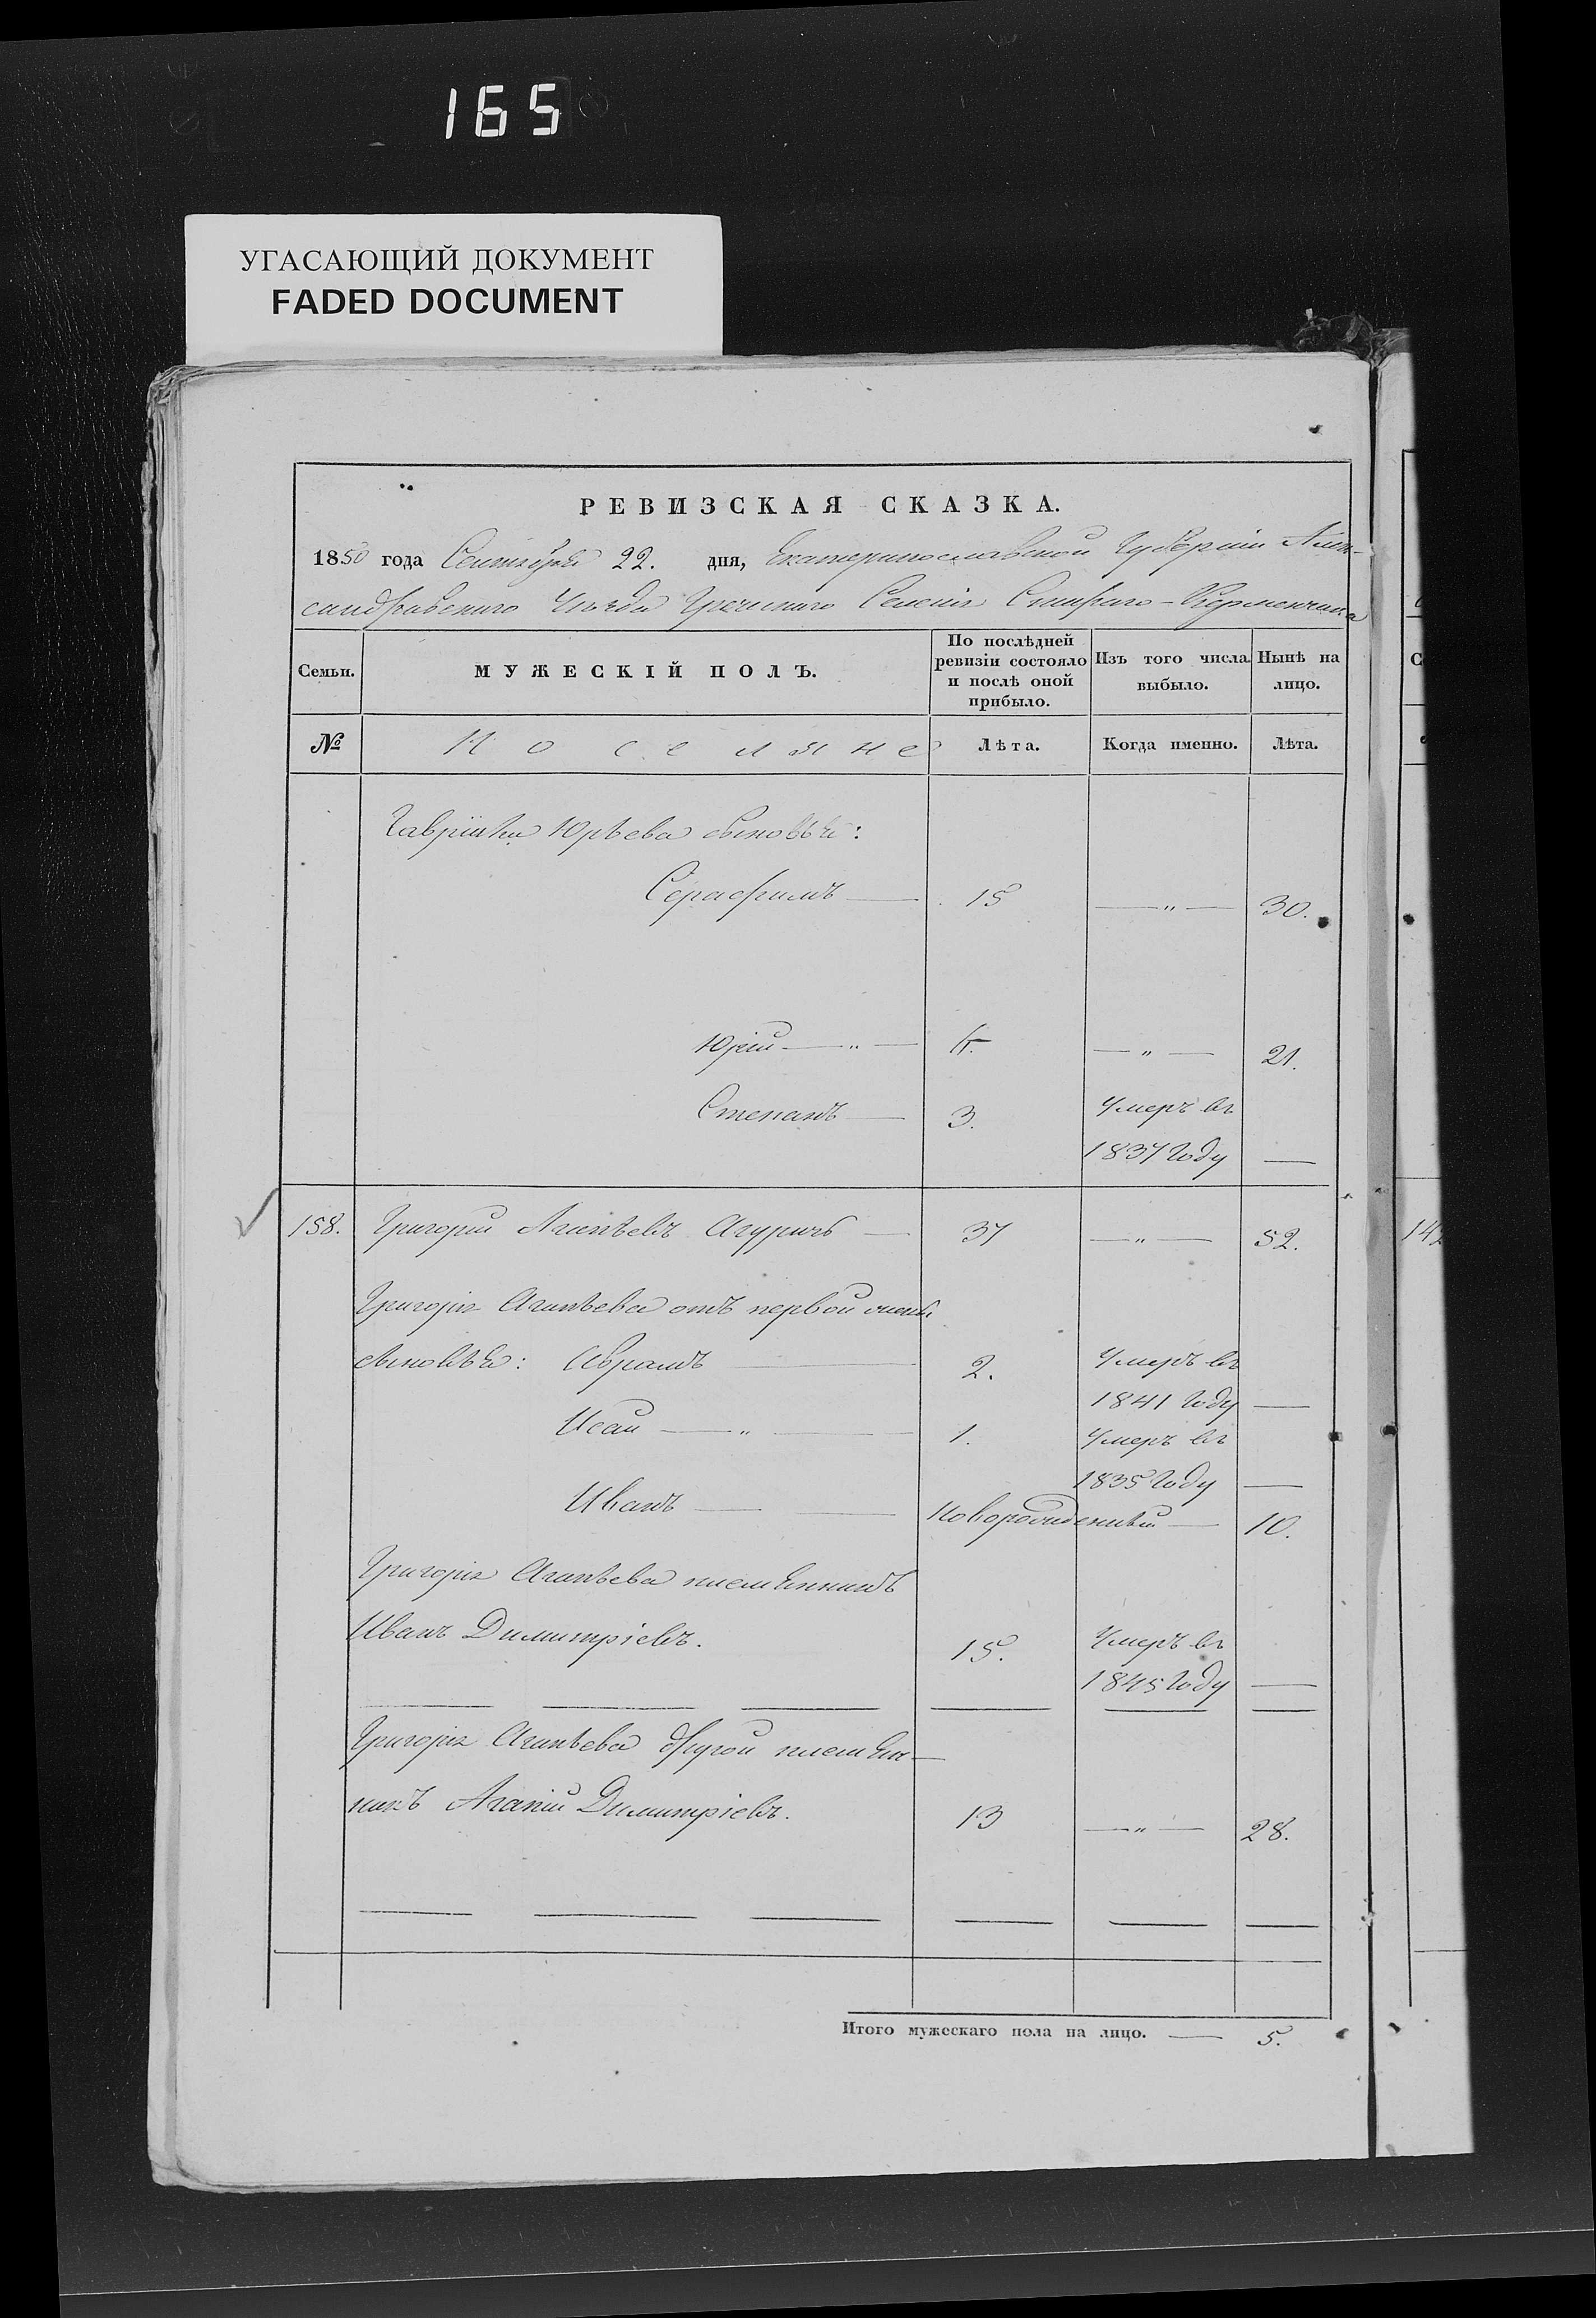 165
УГАСАЮЩИЙ ДОКУМЕНТ
FADED DOCUMENT
РЕВИЗСКАЯ СКАЗКА.
1850 года Сентября 22. дня, Екатеринославской Губернiи Алек-
сандровскаго Уѣзда Греческаго Селенiя Стараго-Керменчика
Семьи. МУЖЕСКIЙ ПОЛЪ. По послѣдней ревизiи состояло и послѣ оной прибыло. Изъ того числа выбыло. Нынѣ на лицо.
№ Поселяне Лѣта. Когда именно. Лѣта.
Юрьева сыновья:
Серафимъ — 15 — " — 30.
Юрiй — " — — " — 21.
Степанъ — 3. Умеръ въ
1837 году —
158. Григорiй Агапѣевъ — 37 — " — 52.
Григорiя Агапѣева отъ первой жены
сыновья: Абрамъ — 2. Умеръ въ
1841 году —
Исай — " — 1. Умеръ въ
1835 году —
Иванъ — — Новорожденный — 10.
Григорiя Агапѣева племянникъ
Иванъ Димитрiевъ. 15. Умеръ въ
1845 году —
Григорiя Агапѣева другой племян-
никъ Агапiй Димитрiевъ. 13 — " — 28.
Итого мужескаго пола на лицо. — 5.
142